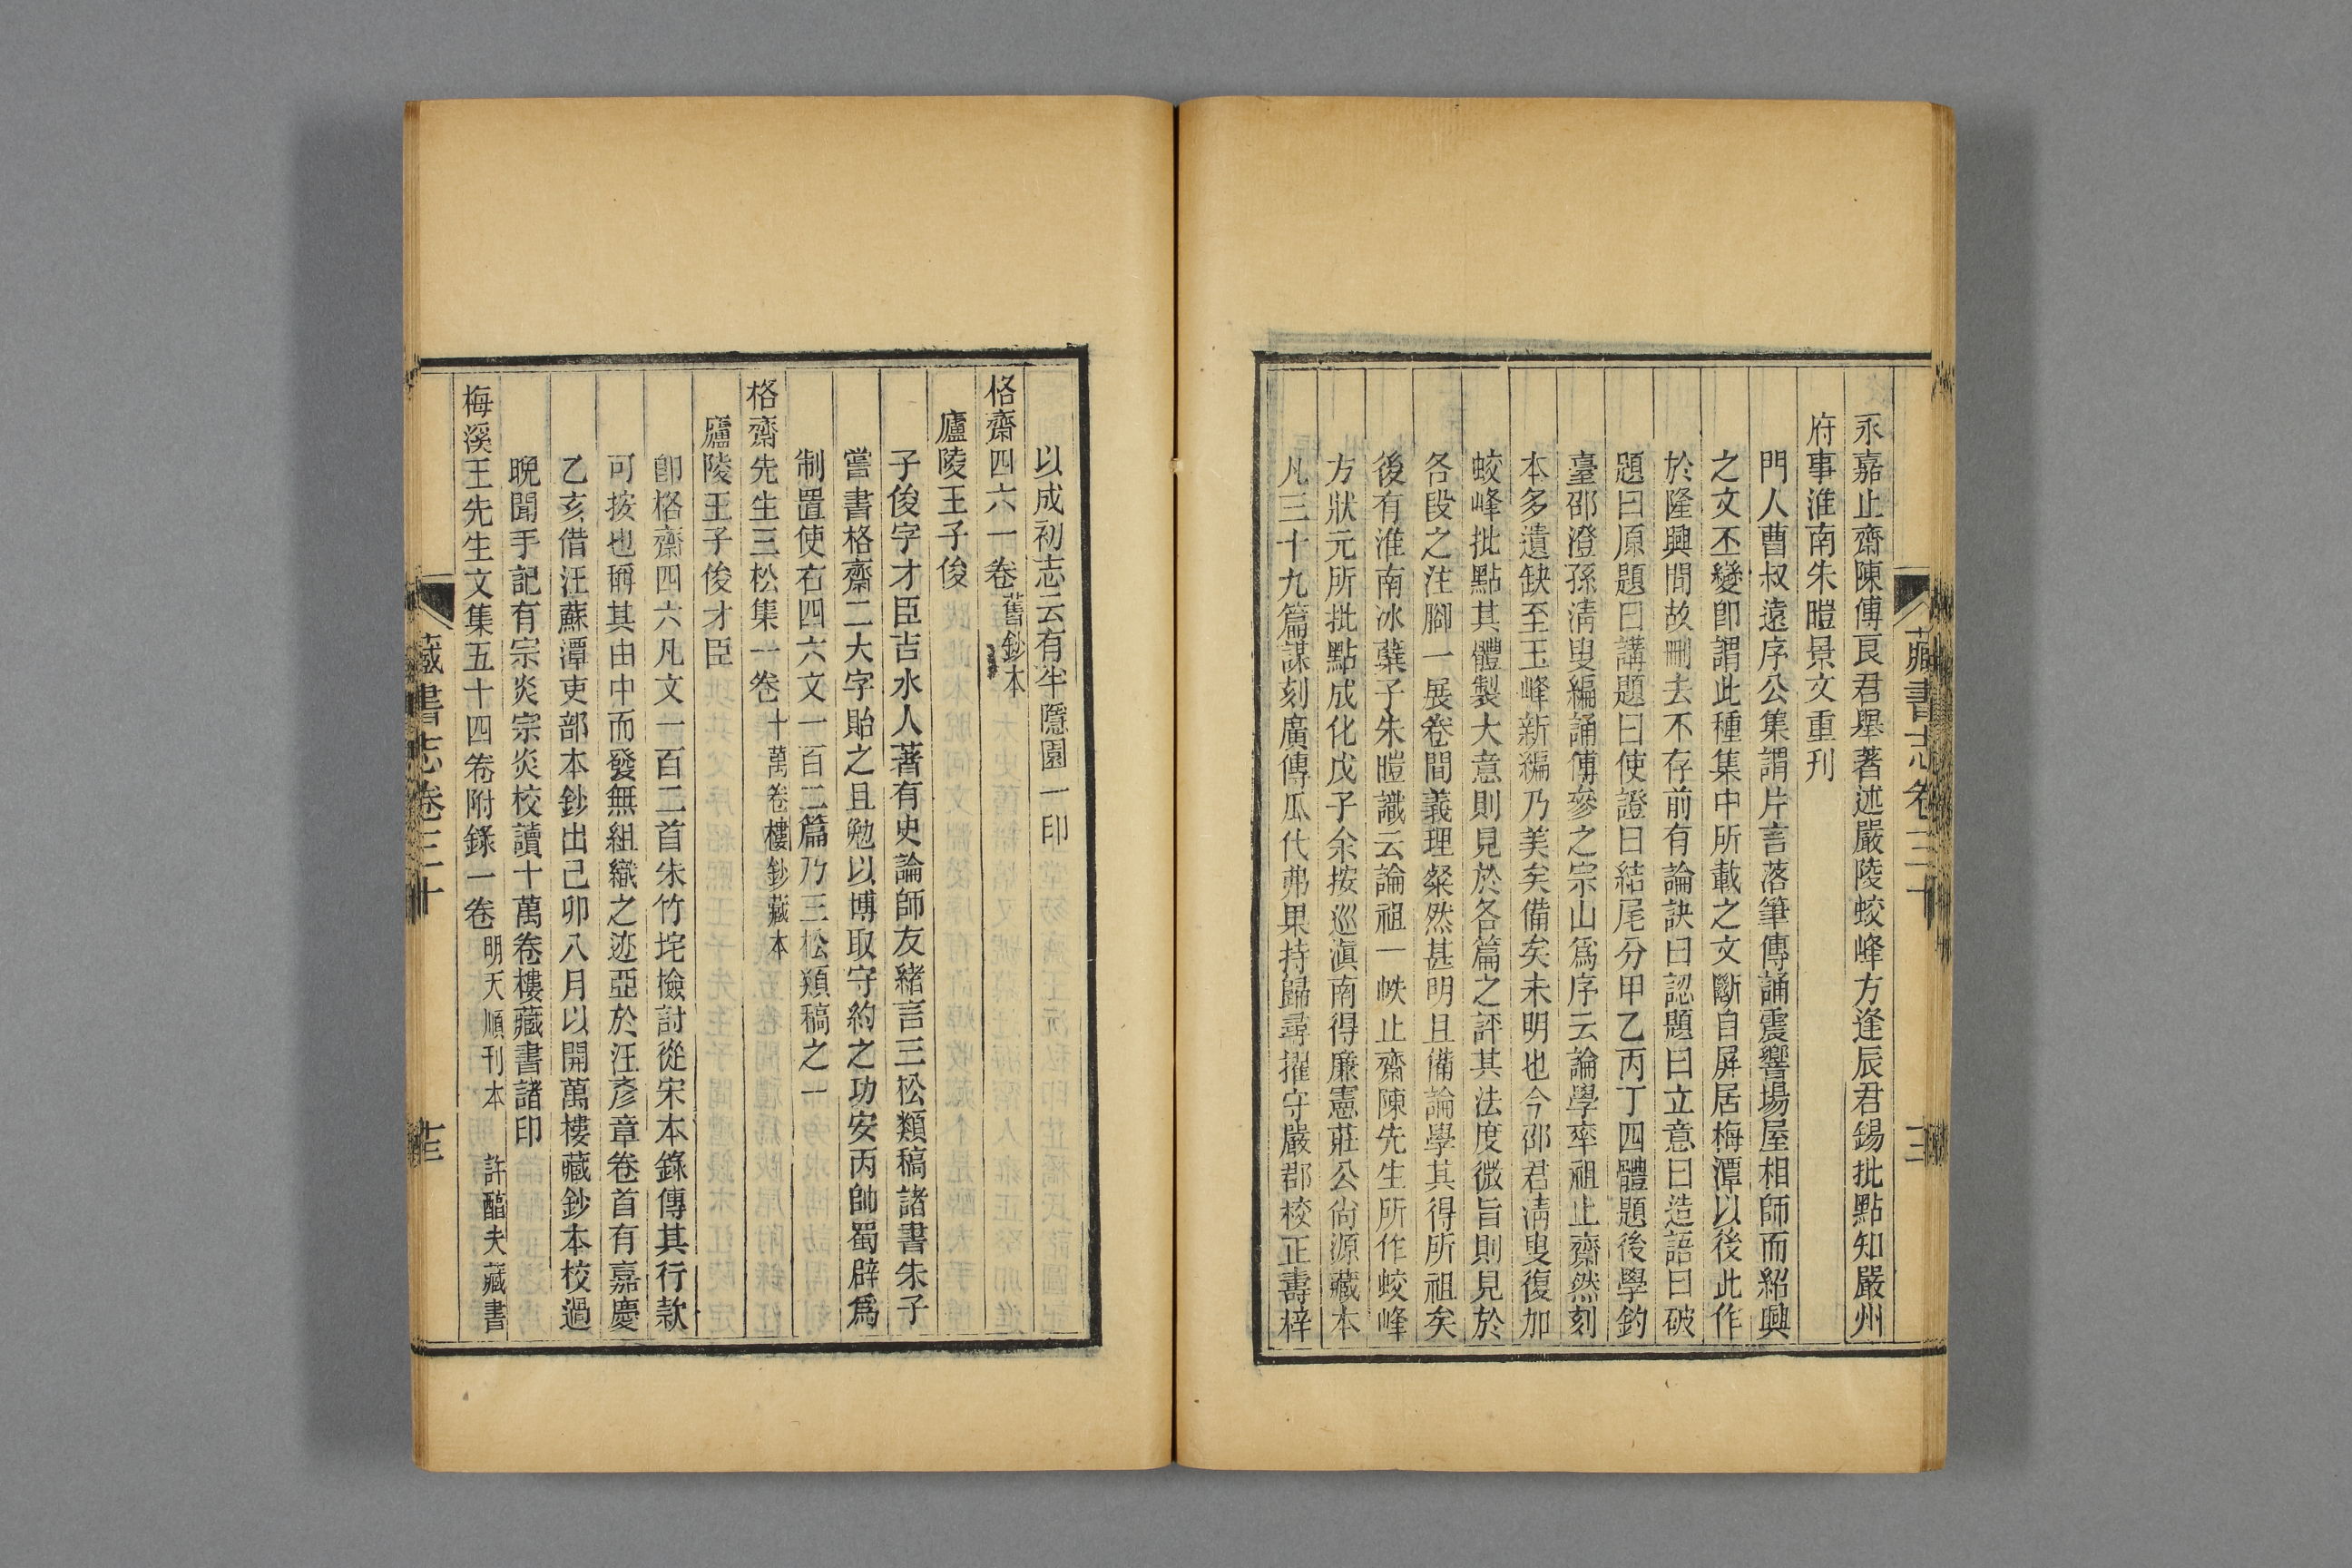 藏書志卷三十
永嘉止齋陳傅良君舉著述嚴陵蛟峰方逢辰君錫批點知嚴州
府事淮南朱暟景文重刊
門人曹叔遠序公集謂片言落筆傳誦震響場屋相師而紹興
之文丕變卽謂此種集中所載之文斷自屏居梅潭以後此作
於隆興間故刪去不存前有論訣曰認題曰立意曰造語曰破
題曰原題曰講題曰使證曰結尾分甲乙丙丁四體題後學釣
臺邵澄孫淸叟編誦傅參之宗山爲序云論學率祖止齋然刻
本多遺缺至玉峰新編乃美矣備矣未明也今邵君淸叟復加
蛟峰批點其體製大意則見於各篇之評其法度微旨則見於
各段之注腳一展卷間義理粲然甚明且備論學其得所祖矣
後有淮南冰蘖子朱暟識云論祖一帙止齋陳先生所作蛟峰
方狀元所批點成化戊子余按巡滇南得廉憲莊公尙源藏本
凡三十九篇謀刻廣傳瓜代弗果持歸尋擢守嚴郡校正壽梓
以成初志云有半隱園一印
格齋四六一卷舊鈔本
廬陵王子俊
子俊字才臣吉水人著有史論師友緒言三松類稿諸書朱子
嘗書格齋二大字貽之且勉以博取守約之功安丙帥蜀辟爲
制置使右四六文一百二篇乃三松類稿之一
格齋先生三松集一卷十萬卷樓鈔藏本
廬陵王子俊才臣
卽格齋四六凡文一百二首朱竹垞檢討從宋本錄傳其行款
可按也稱其由中而發無組織之迹亞於汪彥章卷首有嘉慶
乙亥借汪蘇潭吏部本鈔出己卯八月以開萬樓藏鈔本校過
晩聞手記有宗炎宗炎校讀十萬卷樓藏書諸印
梅溪王先生文集五十四卷附錄一卷明天順刊本 許醯夫藏書
藏書志卷三十